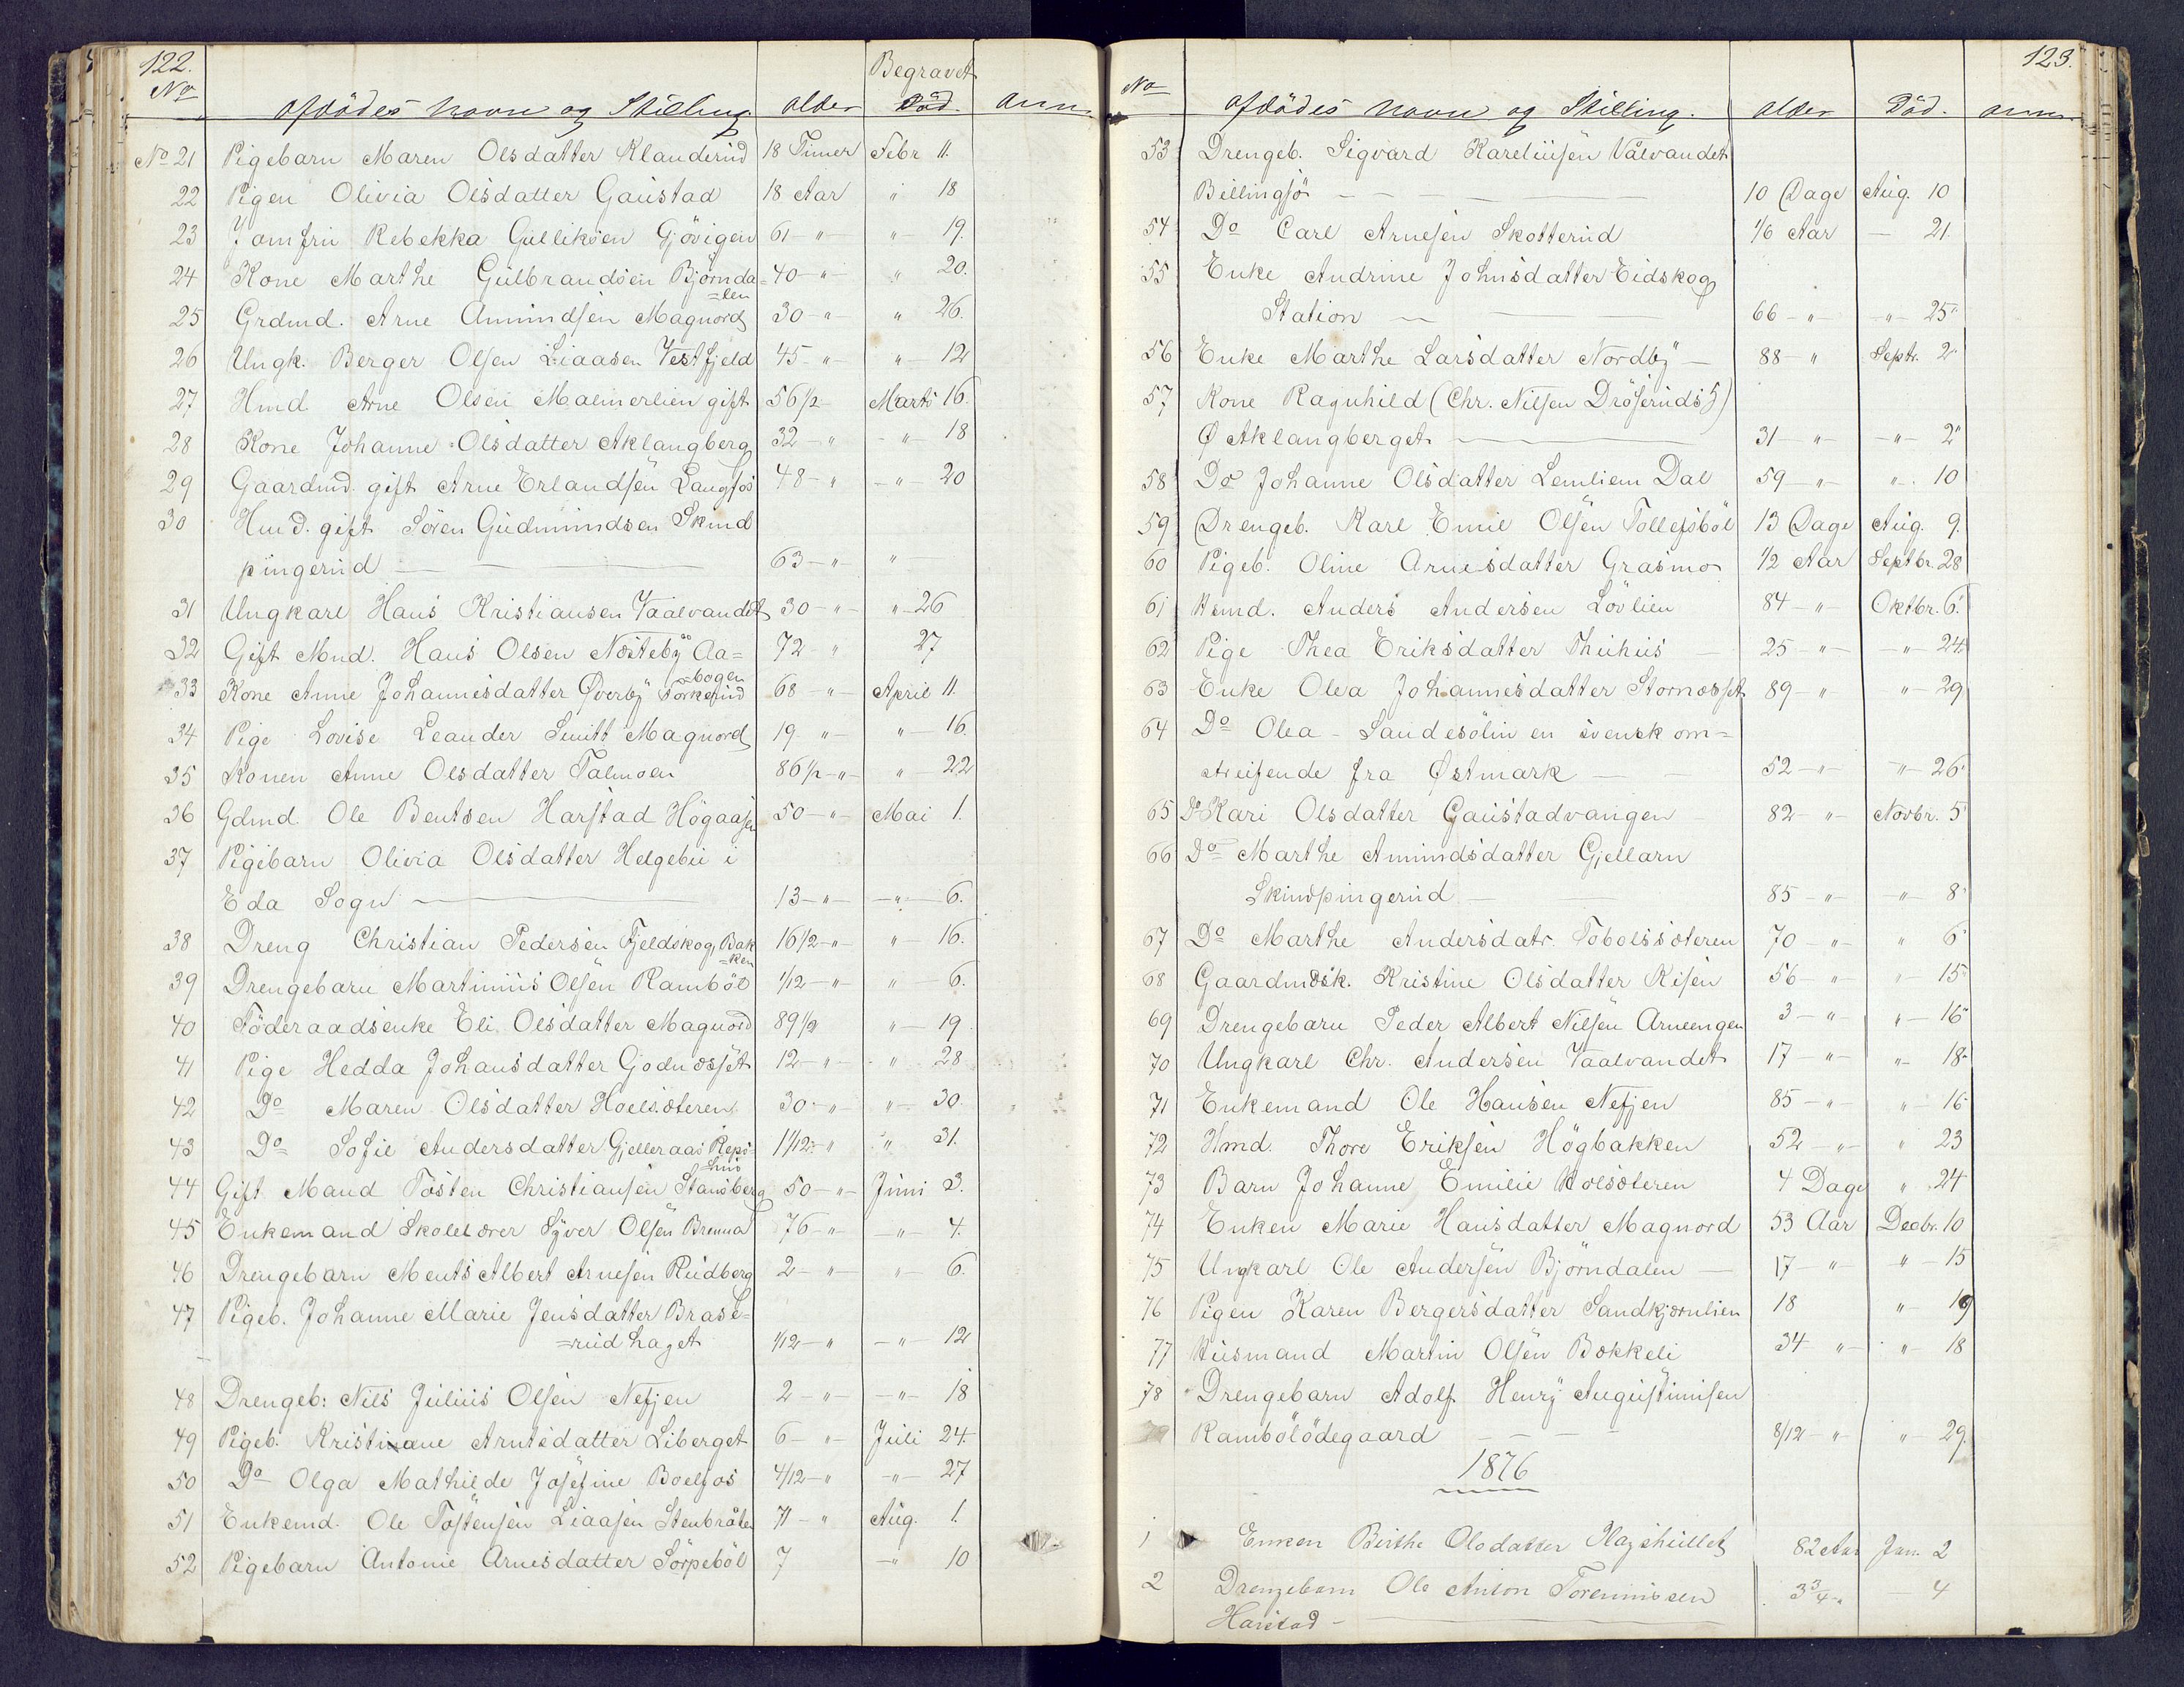 122.
No Afdödes Navn og Stilling. Alder Begravet Död. Anm.
No 21 Pigebarn Maren Olsdatter Klanderud 18 Timer Febr 11.
22 Pigen Olivia Olsdatter Gaustad 18 Aar " 18
23 Jomfru Rebekka Gulliksen Gjövigen 61 - " - " - 19.
24 Kone Marthe Gulbrandsen Björnda= 40 - " - " 20.
=len
25 Grdmd. Arne Amundsen Magnord 30 - " - " 26.
26 Ungk. Berger Olsen Liaasen Vestfjeld 45 - " - " - 12
27 Hmd. Arne Olsen Malmerlien gift 56 1/2 - Marts 16.
28 Kone Johanne Olsdatter Aklangberg 32 - " - " - 18
29 Gaardmd. gift Arne Erlandsen Langfos 48 - " - " - 20
30 Hmd. gift Sören Gudmundsen Skind
pingerud 63 - " - "
31 Ungkarl Hans Kristiansen Vaalvandet 30 - " - " - 26
32 Gift Mnd. Hans Olsen Næsteby Aa= 72 - " 27
=bogen
33 Kone Anne Johannesdatter Överby Torkerud 68 - " - April 11.
34 Pige Lovise Leander Smitt Magnord 19 - " - " - 16.
35 Konen Anne Olsdatter Talmoen 86 1/2 - " - " - 22
36 Gdmd. Ole Bentsen Harstad Högaasen 50 - " - Mai 1.
37 Pigebarn Olivia Olsdatter Helgebu i
Eda Sogn 13 - " - - " - 6.
38 Dreng Christian Pedersen Fjeldskog, Bak 16 1/2 - " - " - 16.
=ken
39 Drengebarn Martinius Olsen Ramböl 1/12 - " - " - 6.
40 Föderaadsenke Eli Olsdatter Magnord 89 1/2 " - 19
41 Pige Hedda Johansdatter Godnæsset 12 - " - " 28
42 Do Maren Olsdatter Hoelsæteren 30 - " - " - 30
43 Do Sofie Andersdatter Gjelleraas Reps= 1 1/12 - " " 31.
=hus
44 Gift Mand Tosten Christiansen Stansberg 50 - " - Juni 3.
45 Enkemand Skolelærer Syver Olsen Brenna 76 - " - - " - 4.
46 Drengebarn Ments Albert Arnesen Rudberg 2 - " - " - 6.
47 Pigeb. Johanne Marie Jensdatter Brase=
=rud haget 1/12 - " - " - 12
48 Drengeb: Nils Julius Olsen Nefjen 2 - " - - " - 18
49 Pigeb. Kristinane Arntsdatter Liberget 6 - " - Juli 24.
50 Do Olga Mathilde Josefine Boelfos 4/12 - " - " - 27
51 Enkemd. Ole Tostensen Liaasen Stenbråten 71 - " Aug. 1.
52 Pigebarn Antonie Arnesdatter Sörpeböl 7 - " 10
123.
No Afdödes Navn og Stilling. Alder Död. Anm.
53 Drengeb. Sigvard Kareliusen Vålvandet
Billingsjö 10 Dage Aug. 10
54 Do Carl Arnesen Skotterud 1/6 Aar - 21.
55 Enke Andrine Johnsdatter Eidskog
Station 66 - " - " - 25
56 Enke Marthe Larsdatter Nordby - 88 - " Septr. 2
57 Kone Ragnhild (Chr. Nilsen Dröserudsz)
Ø Aklangberget 31 - " - " - 2
58 Do Johanne Olsdatter Lemliem Dal 59 - " - ". 10
59 Drengeb. Karl Emil Olsen Tollefsböl 13 Dage Aug. 9.
60 Pigeb. Oline Arnesdatter Grasmo 1/2 Aar Septbr. 28
61 Hsmd. Anders Andersen Lövlien 84 - " - Oktbr. 6.
62 Pige Thea Eriksdatter Thuhus - 25 - " - - " - 24
63 Enke Olea Johannesdatter Stornæsset 89 - " - " - 29
64 Do Olea - Sandesölin en svensk om=
streifende fra Østmark - 52 - " - " - 26
65 Do Kari Olsdatter Gaustadvangen 82 - " - Novbr. 5
66 Do Marthe Amundsdatter Gjellarn
Skindpingerud - 85 - " - - " - 8
67 Do Marthe Andersdatr. Tobolssæteren 70 - " - " 6
68 Gaardmdsk. Kristine Olsdatter Risen 56 - " - " - 15
69 Drengebarn Peder Albert Nilsen Arneengen 3 - " - " - 16
70 Ungkarl Chr. Andersen Vaalvandet 17 - " - " - 18
71 Enkemand Ole Hansen Nefjen 85 - " - " - 16
72 Hmd. Thore Eriksen Högbakken 52 - " - " 23
73 Barn Johanne Emilie Holsæteren 4 Dage " 24
74 Enken Marie Hansdatter Magnord 53 Aar Decbr. 10
75 Ungkarl Ole Andersen Björndalen - 17 - " " - 15
76 Pigen Karen Bergersdatter Sandkjærnlien 18 " - 19
77 Husmand Martin Olsen Bækkeli 34 - " - " - 18
78 Drengebarn Adolf Henry Augustinusen
Rambölödegaard 8/12 - " " - 29.
1876
1 Enken Birthe Olsdatter 82 Aar Jan. 2
2 Drengebarn Ole Anton 3 3/4 - " 4
Harstad -